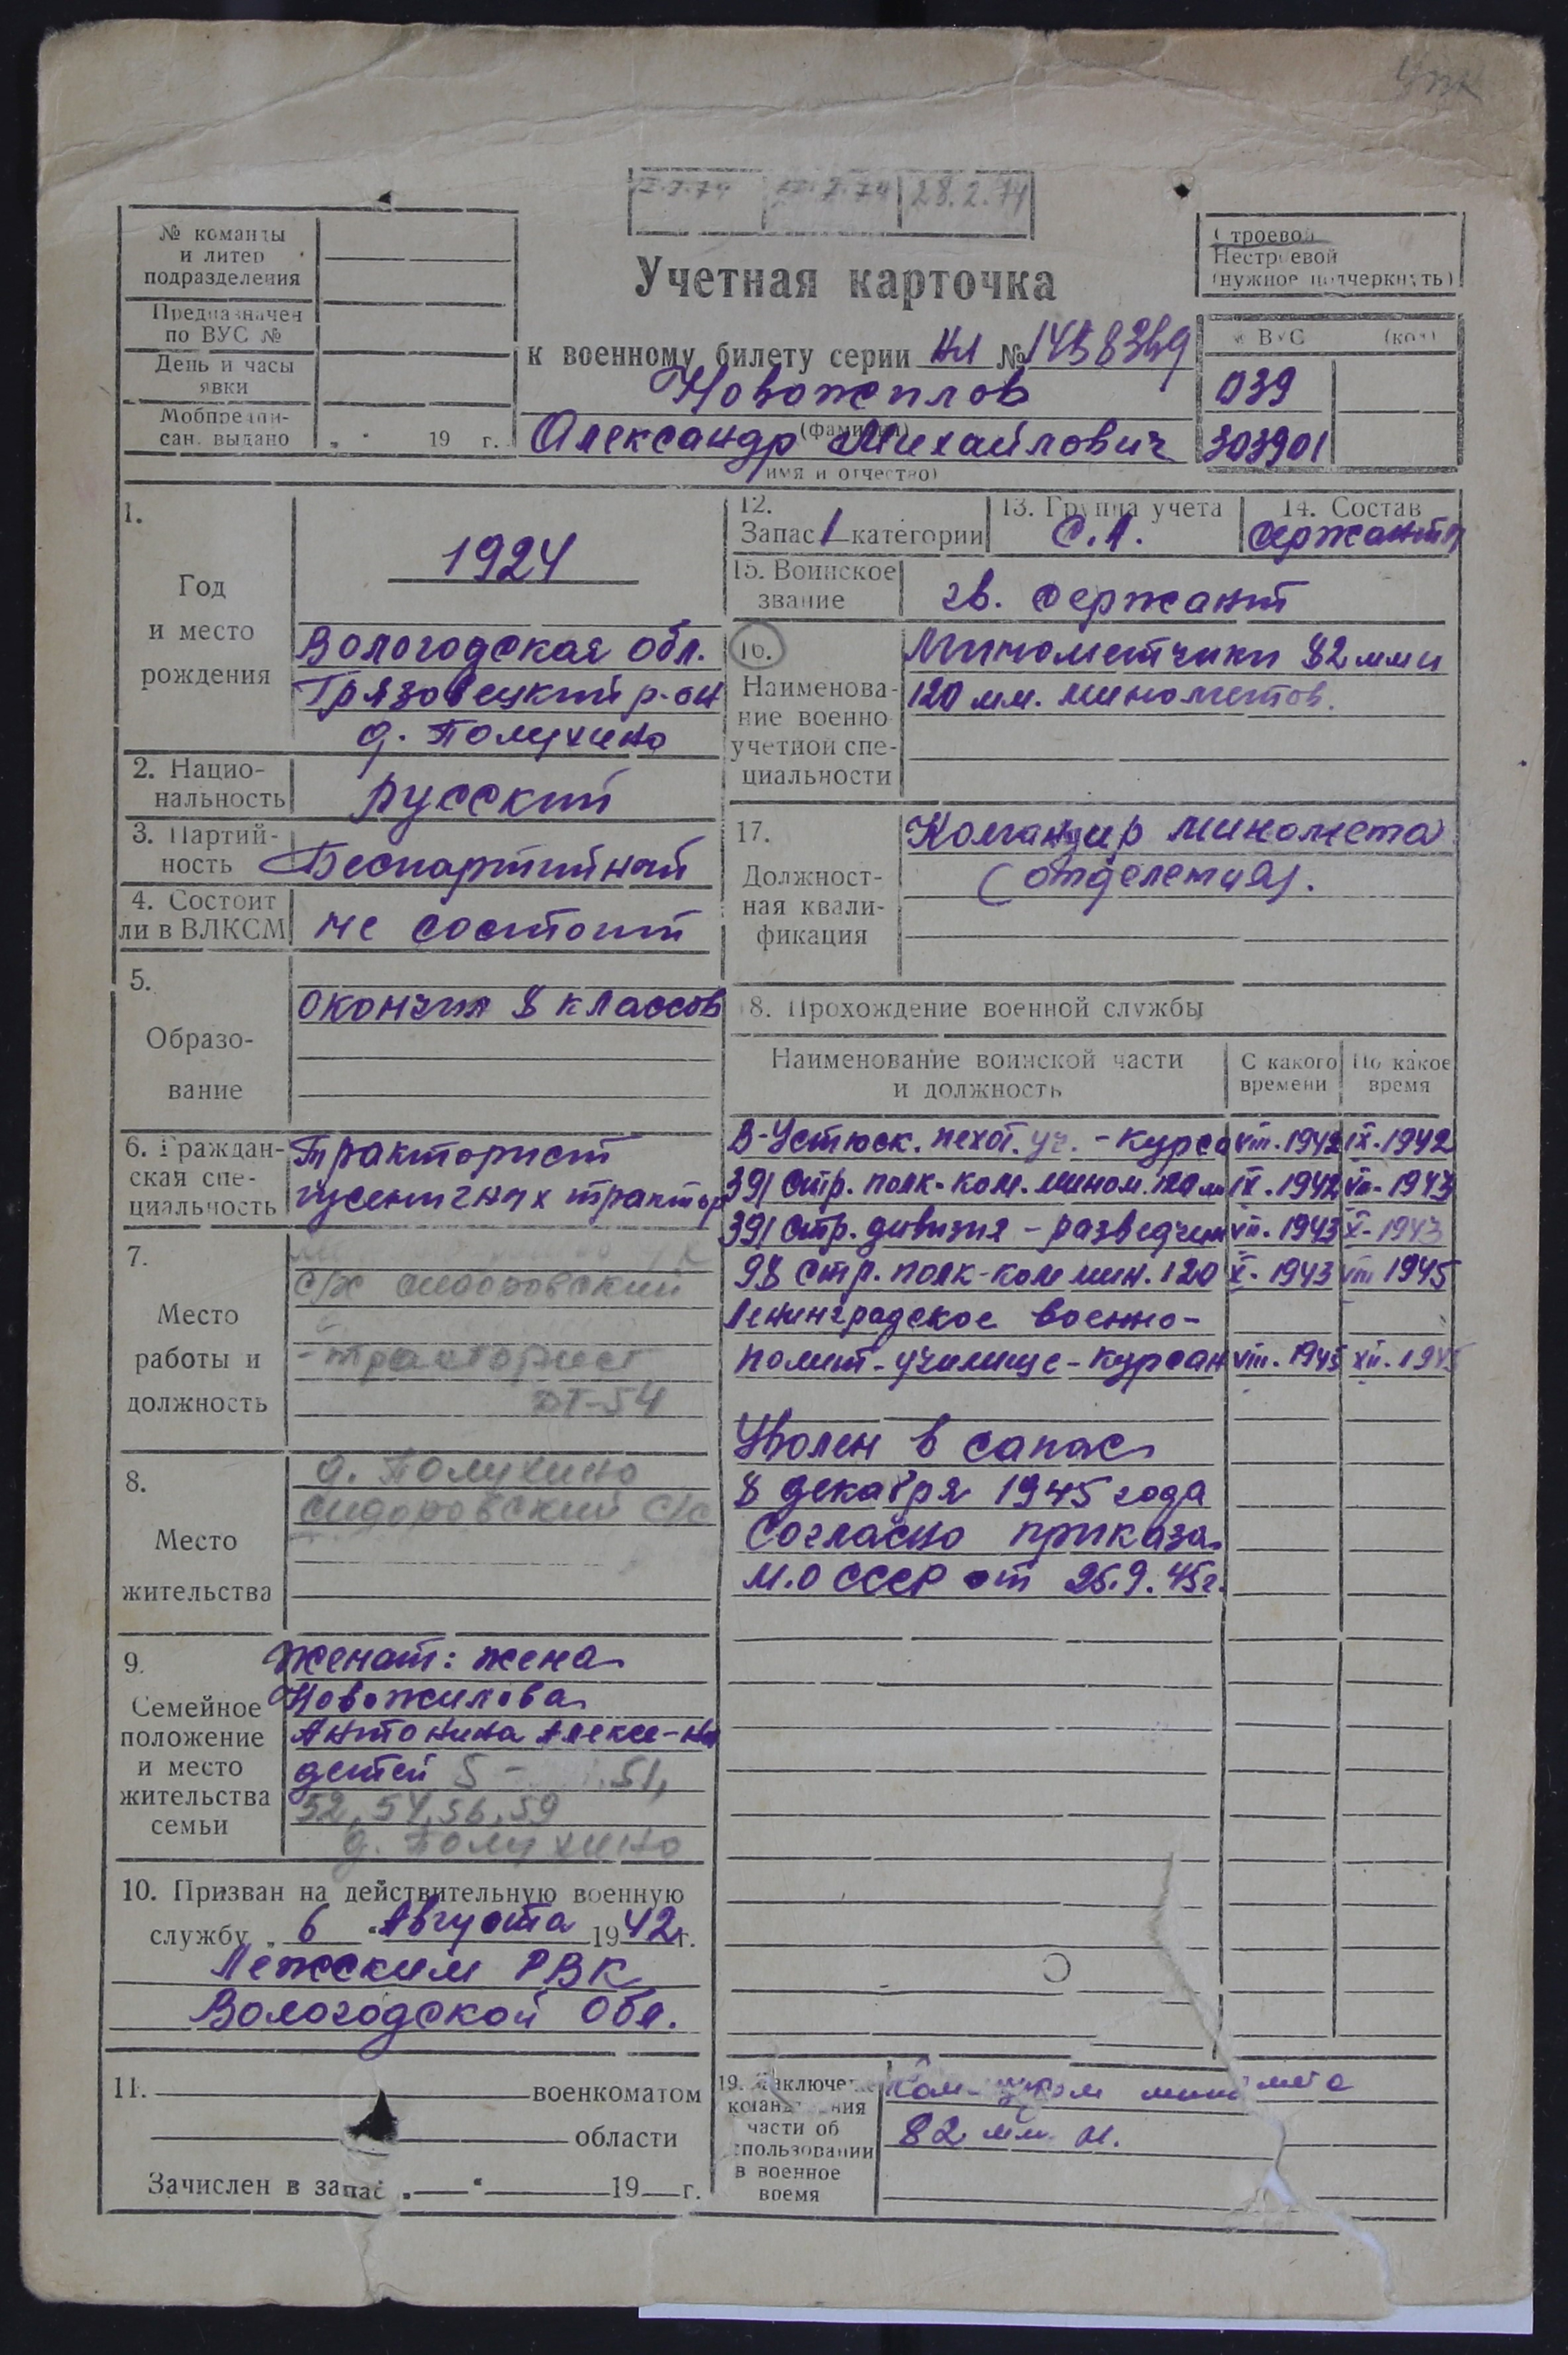 28.2.74
№ команды
и литер
подразделения
Предназначен
по ВУС №
День и часы
явки
Мобпредпи-
сан. выдано „ “ 19 г.
Учетная карточка
к военному билету серии НЛ №
Новожилов
(фамилия)
Александр Михайлович
имя и отчество)
Строевой
Нестроевой
(нужное подчеркнуть)
№ ВУС (код)
039
303901
1.
Год
и место
рождения
1924
Вологодская обл.
Грязовецкий р-он
д. Полухино
2. Нацио-
нальность
русский
3. Партий-
ность
Беспартийный
4. Состоит
ли в ВЛКСМ
не состоит
5.
Образо-
вание
окончил 8 классов
6. Граждан-
ская спе-
циальность
Тракторист
гусеничных трактор
7.
Место
работы и
должность
с/х сидоровский
- тракторист
ДТ-54
8.
Место
жительства
д. Полухино
сидоровский с/с
9.
Семейное
положение
и место
жительства
семьи
женат: жена
Новожилова
Антонина Алексе-на
детей 5 - 51,
52, 54, 56, 59
д. Полухино
10. Призван на действительную военную
службу „ 6 “ Августа 1942 г.
Лежским РВК
Вологодской Обл.
11. военкоматом
области
Зачислен в запас „ “ 19 г.
12.
Запас 1 категории
13. Группа учета
С.А.
14. Состав
сержанты
15. Воинское
звание
гв. сержант
16.
Наименова-
ние военно
учетной спе-
циальности
Минометчики 82 мм и
120 мм. минометов.
17.
Должност-
ная квали-
фикация
Командир миномета
(отделения).
18. Прохождение военной службы
Наименование воинской части
и должность
С какого
времени
По какое
время
В-Устюск. пехот. уч. - курса VIII.1942 IX.1942
391 стр. полк-ком. мином. 120 мм IX.1942 VII-1943
391 стр. дивизия - разведчик VII.1943 X-1943
98 стр. полк-ком мин. 120 X.1943 VIII 1945
Ленинградское военно-
полит-училище-курсан VIII.1945 XII.1945
Уволен в сапас
8 декабря 1945 года
Согласно приказа
М.О СССР от 25.9.45г.
19. Заключение
командования
части об
использовании
в военное
время
Командиром миномета
82 мм. м.